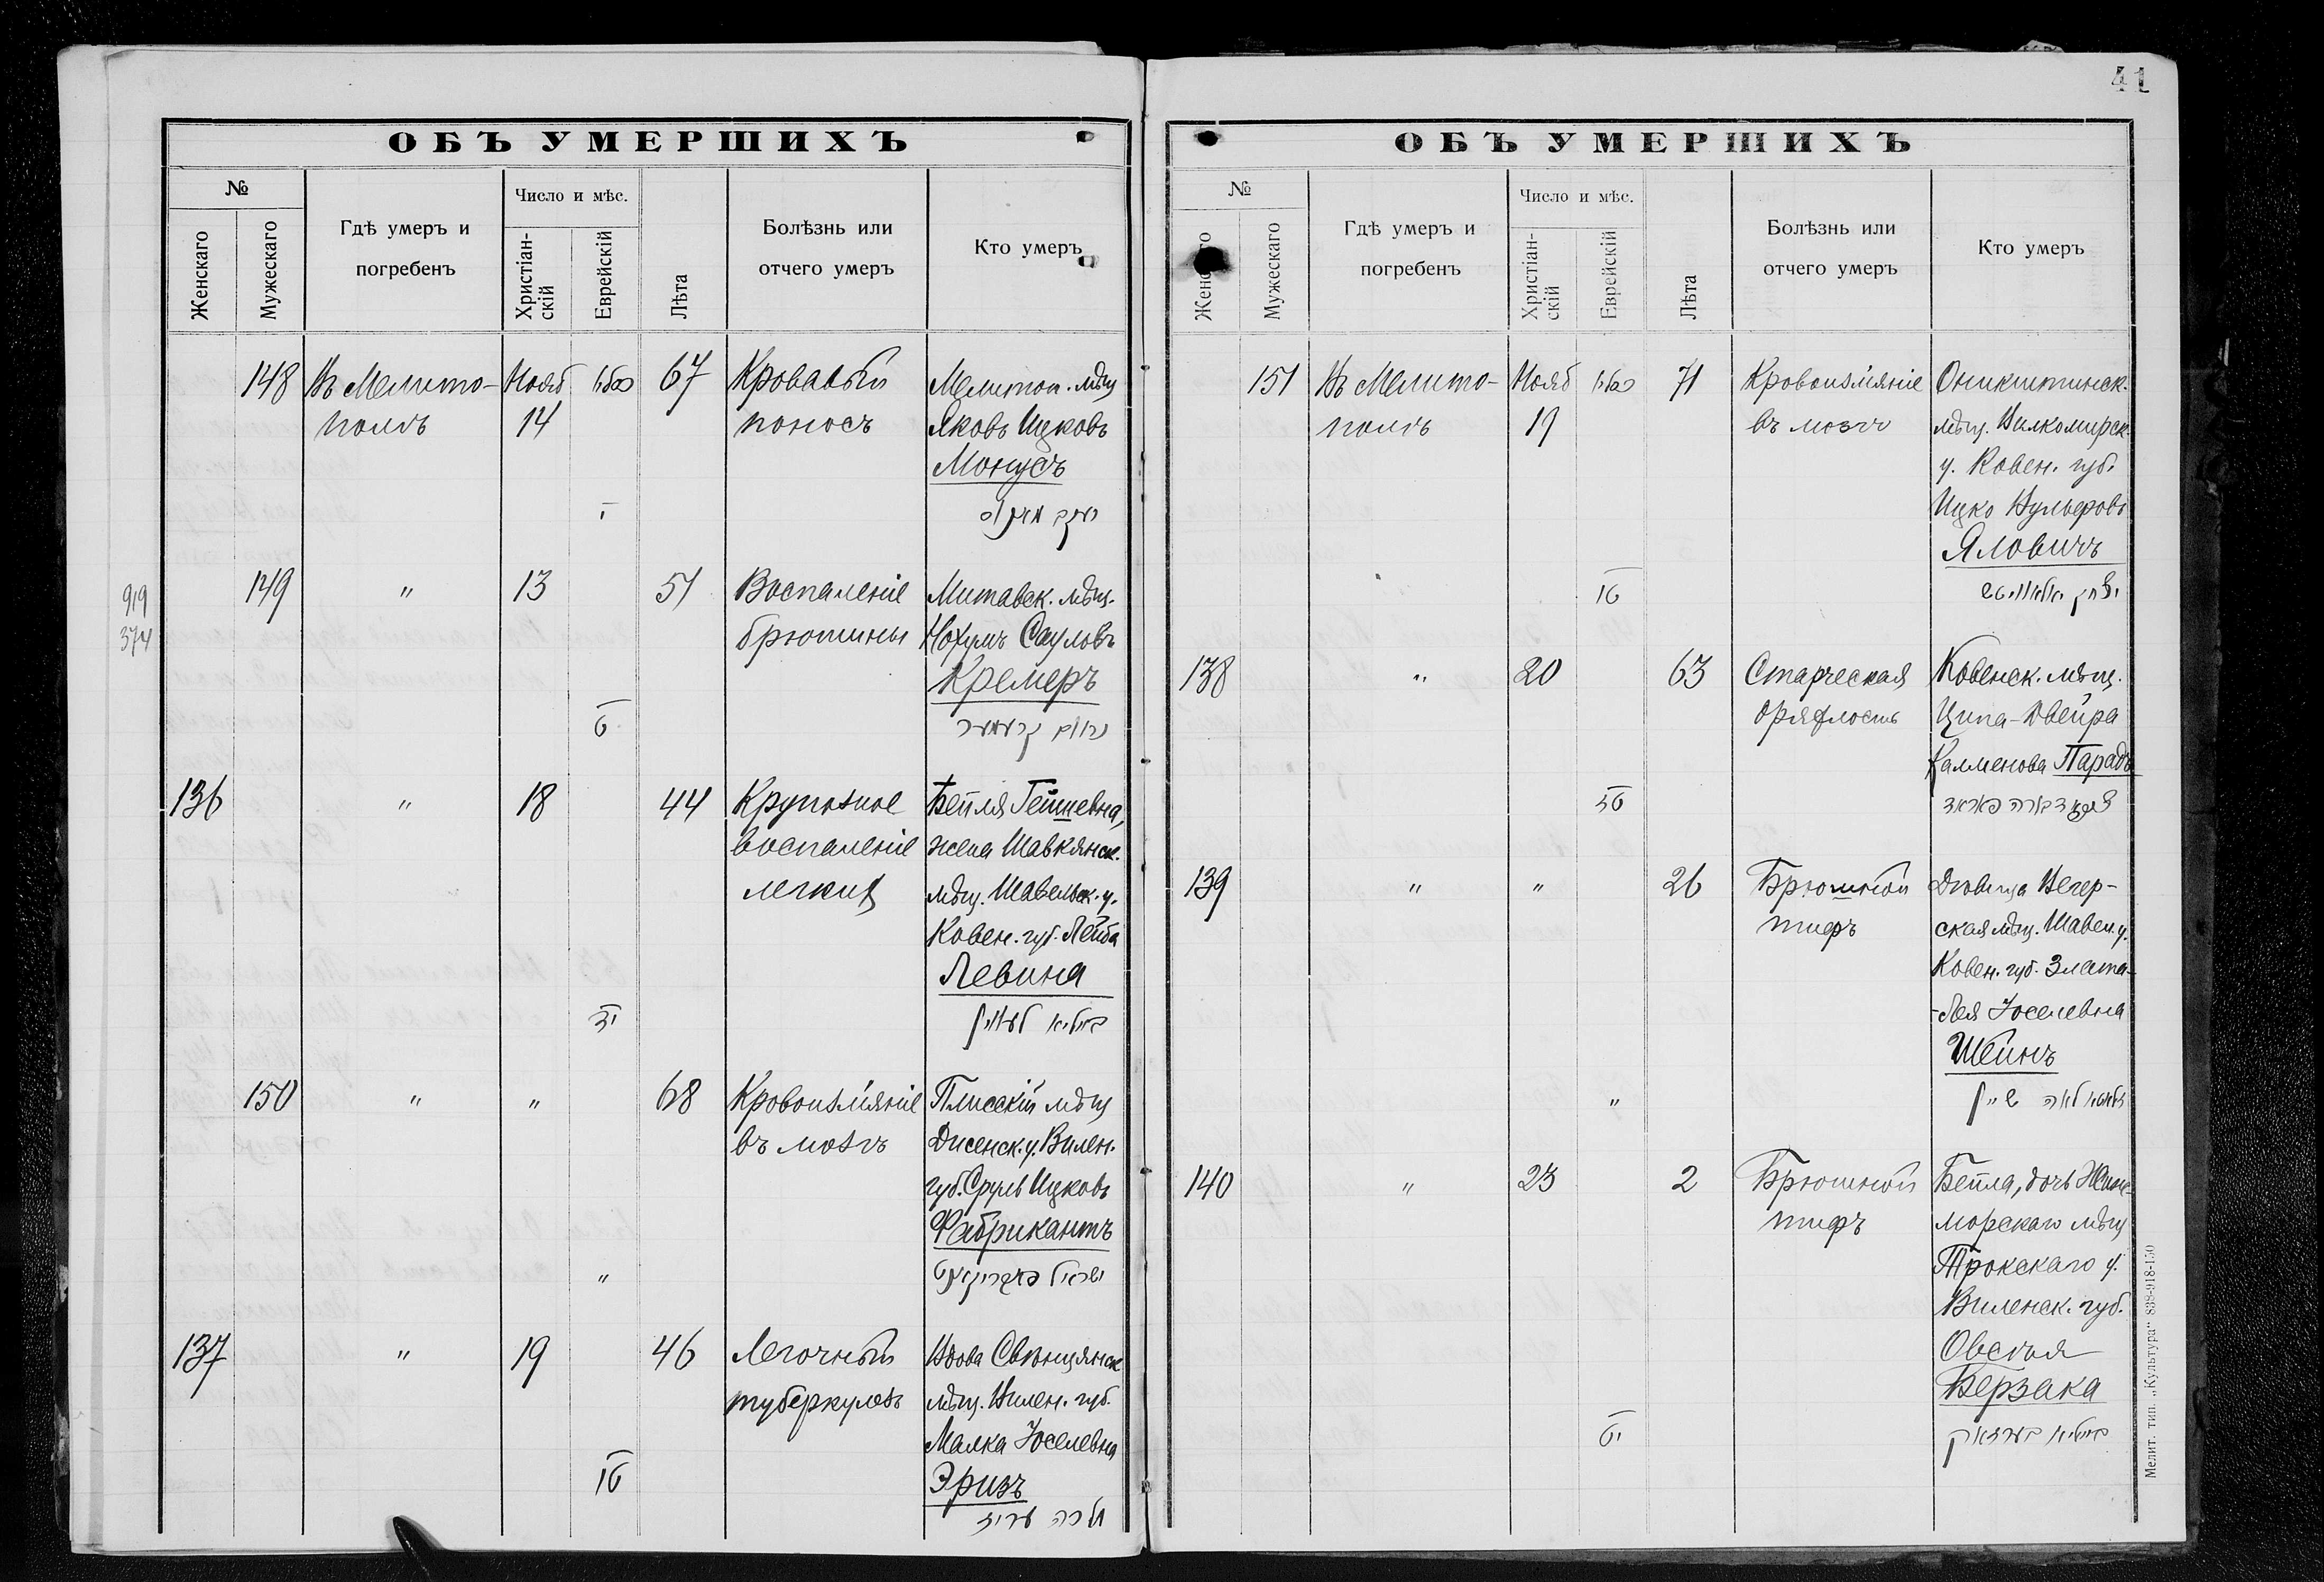 41
ОБЪ УМЕРШИХЪ
№
Женскаго
Мужескаго
Гдѣ умеръ и
погребенъ
Число и мѣс.
Христіан-
скій
Еврейскій
Лѣта
Болѣзнь или
отчего умеръ
Кто умеръ
148 Въ Мелито- Нояб 67 Кровавый Мелитоп. мѣщ
полѣ 14 поносъ Яковъ Ицковъ
Монусъ
919
374
149 " 13 51 Воспаленіе Митавск. мѣщ.
брюшины Нохумъ Сауловъ
Кремеръ
136 " 18 44 Крупозное Бейля
воспаленіе жена Шавлянск.
легкихъ мѣщ. Шавельск. у.
Ковен. губ. Лейба
Левина
150 " " 68 Кровоизліяніе Плисскій мѣщ
въ мозгъ Дисенск. у. Вилен.
губ. Сруль Ицковъ
Фабрикантъ
ישראל פאבריקאנט
"
137 " 19 46 Легочный Вдова Свѣнцянск
туберкулезъ мѣщ. Вилен. губ.
Малка Іоселевна
Эризъ
ОБЪ УМЕРШИХЪ
№
Женскаго
Мужескаго
Гдѣ умеръ и
погребенъ
Число и мѣс.
Христіан-
скій
Еврейскій
Лѣта
Болѣзнь или
отчего умеръ
Кто умеръ
151 Въ Мелито- Нояб 71 Кровоизліяніе Оникштинск.
полѣ 19 въ мозгъ мѣщ. Вилкомирск.
у. Ковен. губ.
Ицко Вульфовъ
Яловичъ
138 " 20 63 Старческая Ковенск. мѣщ.
дряхлость Ципа-Двейра
Калменова Парадъ
139 " " 26 Брюшной Дѣвица Вегер-
тифъ ская мѣщ. Шавел. у.
Ковен. губ. Злата-
-Лея Іоселевна
Шейнъ
"
140 " 23 2 Брюшной Бейла, дочь Жижм-
тифъ морскаго мѣщ
Трокскаго у.
Виленск. губ.
Овсея
Берзака
ביילא בערזאק
Мелит. тип. „Культура" 838-918-150